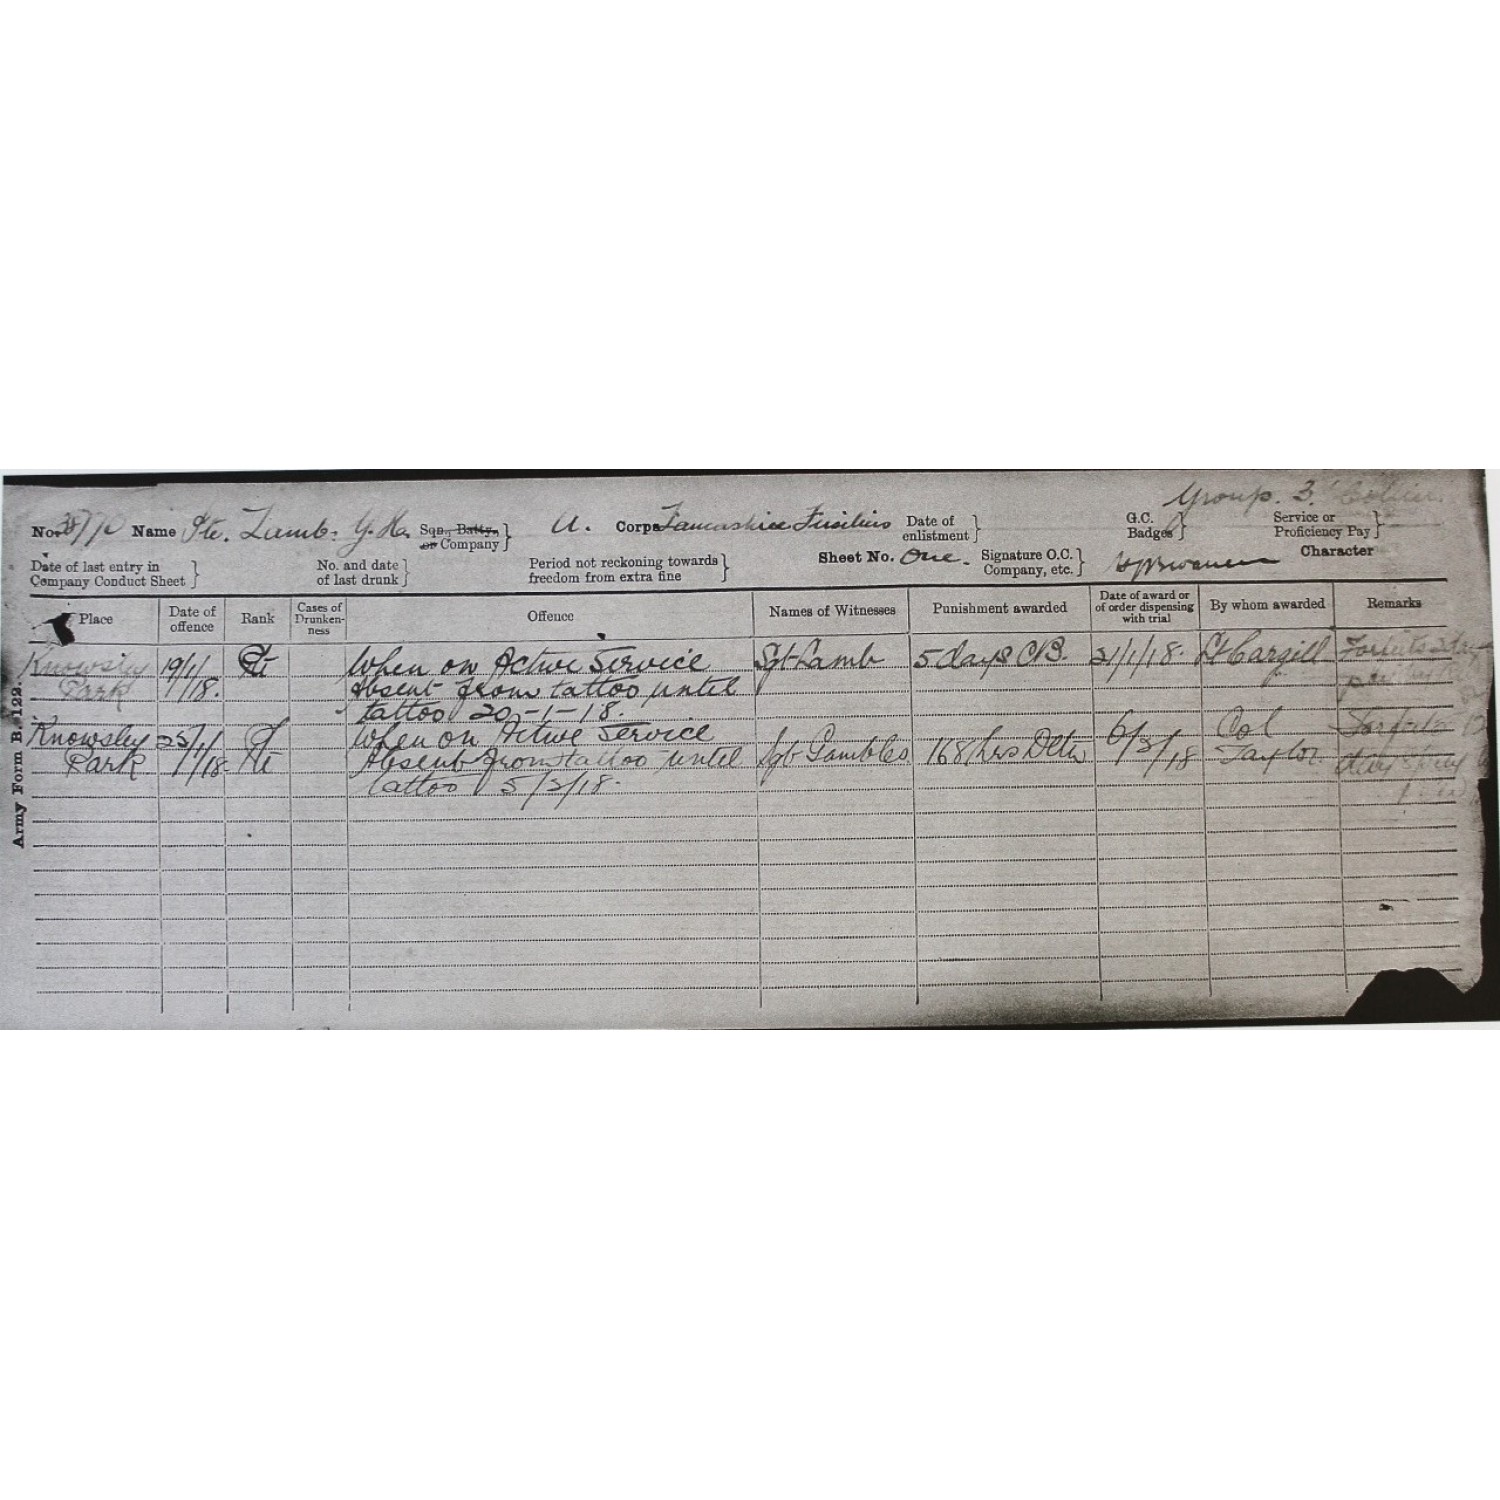 Group. 3.
No. Name Pte. Lamb. G. H. Sqn., Batty., or Company } A. Corps Lancashire Fusiliers Date of enlistment } G.C. Badges } Service or Proficiency Pay }
Date of last entry in Company Conduct Sheet } No. and date of last drunk } Period not reckoning towards freedom from extra fine } Sheet No. One. Signature O.C. Company, etc. } Character
Place Date of offence Rank Cases of Drunken-ness Offence Names of Witnesses Punishment awarded Date of award or of order dispensing with trial By whom awarded Remarks
Knowsley 19/1/18. Pte When on Active Service Sgt Lamb 5 days CB. 21/1/18. Lt Cargill Forfeits
Park Absent from tattoo until
tattoo 20-1-18.
Knowsley 25/1/18. Pte When on Active Service Col
Park Absent from tattoo until Sgt Gambles 168 hrs Detn 6/2/18 Taylor.
tattoo 5/2/18.
Army Form B. 122.